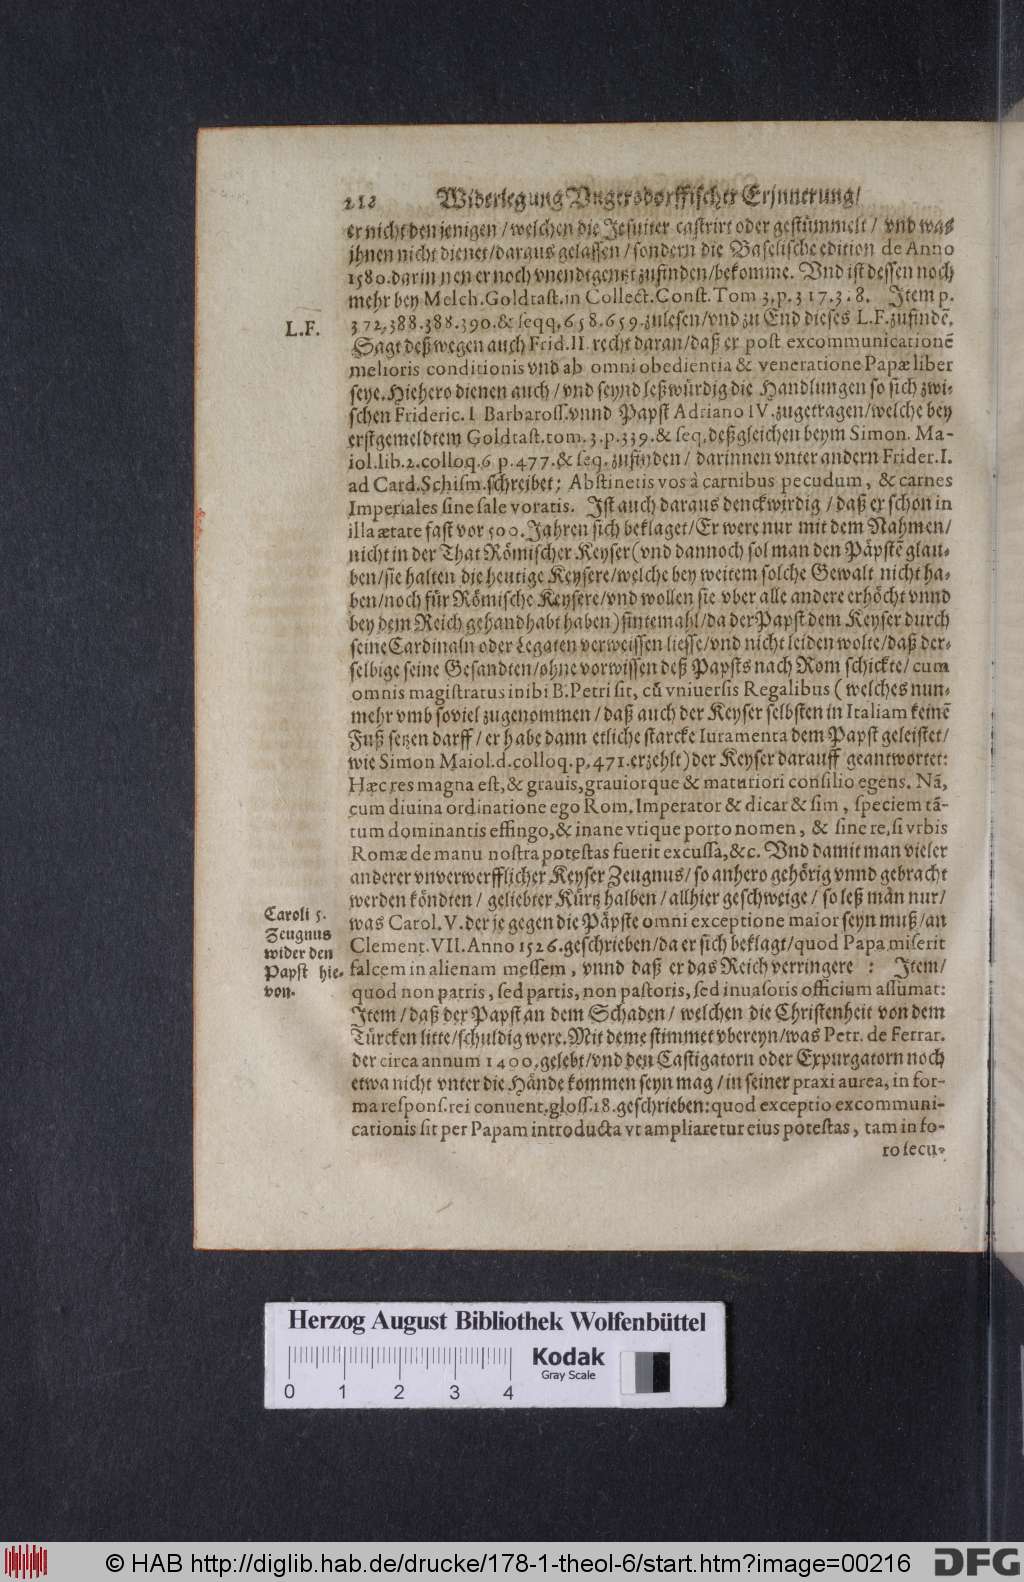 212 Widerlegung Vngersdorffischer Erinnerung/
er nicht den jenigen / welchen die Jesuiter castrirt oder gestümmelt / vnd was
jhnen nicht dienet/daraus gelassen / sondern die Baselische edition de Anno
1580.darinnen er noch vnendtgentzt zufinden/bekomme. Vnd ist dessen noch
mehr bey Melch.Goldtast.in Collect.Const.Tom 3.p.317.3.8. Item p.
L.F.
372.388.388.390.& seqq.658.659.zulesen/vnd zu End dieses L.F.zufindē.
Sagt deßwegen auch Frid.II.recht daran/daß er post excommunicationē
melioris conditionis vnd ab omni obedientia & veneratione Papæ liber
seye.Hiehero dienen auch / vnd seynd leßwürdig die Handlungen so sich zwi-
schen Frideric.I Barbaross.vnnd Papst Adriano IV.zugetragen/welche bey
erstgemeldtem Goldtast.tom.3.p.339.& seq.deßgleichen beym Simon. Ma-
iol.lib.2.colloq.6 p.477.& seq.zufinden / darinnen vnter andern Frider.I.
ad Card.Schism.schreibet: Abstinetis vos à carnibus pecudum, & carnes
Imperiales sine sale voratis. Ist auch daraus denckwirdig / daß er schon in
illa ætate fast vor 500.Jahren sich beklaget/Er were nur mit dem Nahmen/
nicht in der That Römischer Keyser(vnd dannoch sol man den Päpstē glau-
ben/sie halten die heutige Keysere/welche bey weitem solche Gewalt nicht ha-
ben/noch für Römische Keysere/vnd wollen sie vber alle andere erhöcht vnnd
bey dem Reich gehandhabt haben)sintemahl/da der Papst dem Keyser durch
seine Cardinaln oder Legaten verweissen liesse/vnd nicht leiden wolte/daß der-
selbige seine Gesandten/ohne vorwissen deß Papsts nach Rom schickte/ cum
omnis magistratus inibi B.Petri sit, cū vniuersis Regalibus (welches nun-
mehr vmb soviel zugenommen / daß auch der Keyser selbsten in Italiam keinē
Fuß setzen darff / er habe dann etliche starcke Iuramenta dem Papst geleistet/
wie Simon Maiol.d.colloq.p.471.erzehlt)der Keyser darauff geantwortet:
Hæc res magna est,& grauis,grauiorque & maturiori consilio egens. Nā,
cum diuina ordinatione ego Rom.Imperator & dicar & sim, speciem tā-
tum dominantis effingo,& inane vtique porto nomen, & sine re,si vrbis
Romæ de manu nostra potestas fuerit excussa,&c. Vnd damit man vieler
anderer vnverwerfflicher Keyser Zeugnus/so anhero gehörig vnnd gebracht
werden köndten / geliebter Kürtz halben / allhier geschweige / so leß man nur/
Caroli 5.
Zeugnus
wider den
Papst hie-
von.
was Carol.V.der je gegen die Päpste omni exceptione maior seyn muß/an
Clement.VII.Anno 1526.geschrieben/da er sich beklagt/quod Papa miserit
falcem in alienam messem, vnnd daß er das Reich verringere : Item/
quod non patris, sed partis, non pastoris, sed inuasoris officium assumat:
Item / daß der Papst an dem Schaden / welchen die Christenheit von dem
Türcken litte/schuldig were.Mit deme stimmet vbereyn/was Petr. de Ferrar.
der circa annum 1400.gelebt/vnd den Castigatorn oder Expurgatorn noch
etwa nicht vnter die Hände kommen seyn mag / in seiner praxi aurea, in for-
ma respons.rei conuent.gloss.18.geschrieben:quod exceptio excommuni-
cationis sit per Papam introducta vt ampliaretur eius potestas, tam in fo-
ro secu-
Herzog August Bibliothek Wolfenbüttel
Kodak
Gray Scale
0 1 2 3 4
© HAB http://diglib.hab.de/drucke/178-1-theol-6/start.htm?image=00216
DFG